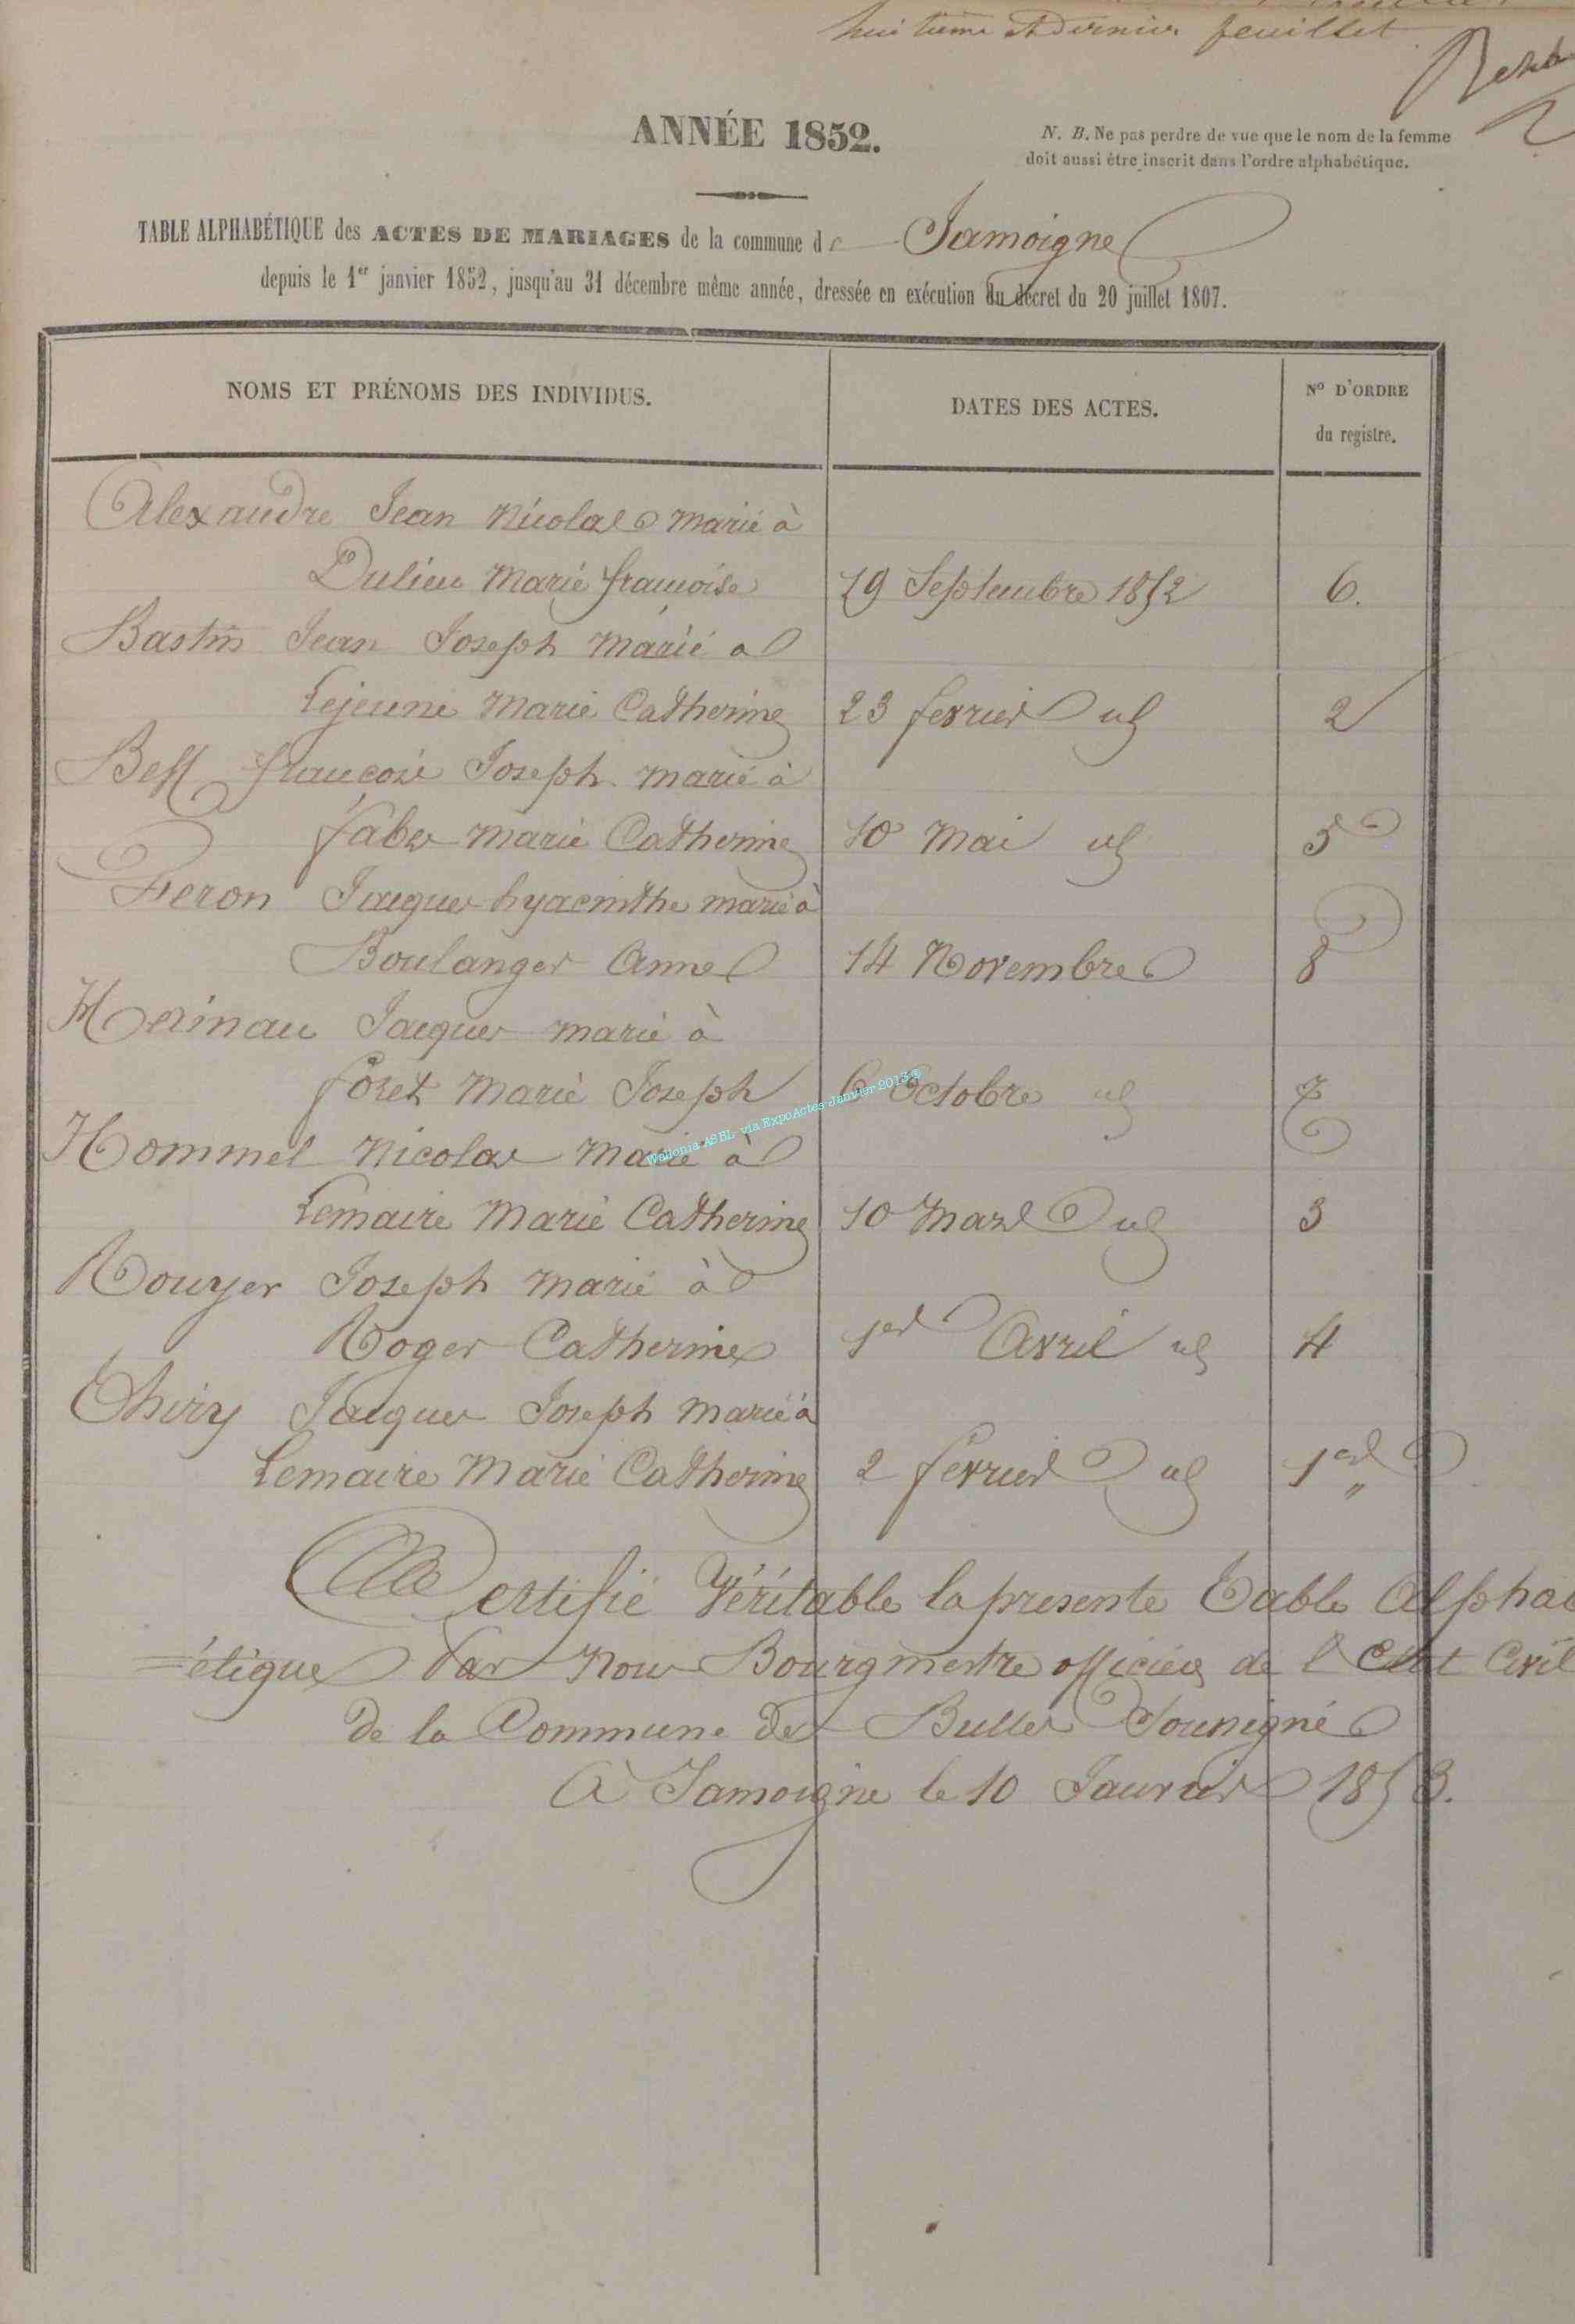 huitieme et dernier feuillet
ANNÉE 1852.
N. B. Ne pas perdre de vue que le nom de la femme
doit aussi être inscrit dans l'ordre alphabétique.
TABLE ALPHABÉTIQUE des ACTES DE MARIAGES de la commune de Jamoigne
depuis le 1er janvier 1852, jusqu'au 31 décembre même année, dressée en exécution du décret du 20 juillet 1807.
NOMS ET PRÉNOMS DES INDIVIDUS. DATES DES ACTES. No D'ORDRE
du registre.
Alexandre Jean Nicolas marié à
Dulieu Marie francoise 19 Septembre 1852 6.
Bastin Jean Joseph marié a
Lejeune Marie Catherine 23 fevrier id 2
francois Joseph marié à
faber marie Catherine 10 Mai id 5
Feron Jacques hyacinthe marié à
Boulanger Anne 14 Novembre 8
Jacques marié à
foret Marie Joseph 6 Octobre id 7
Hommel Nicolas marié à
Lemaire Marie Catherine 10 Mars id 3
Rouyer Joseph marié à
Roger Catherine 1er Avril id 4
Thiry Jacques Joseph marié à
Lemaire Marie Catherine 2 fevrier id 1er "
Certifié Véritable la presente Table Alphab
=étique Par Nous Bourgmestre officier de l Etat Civil
de la Commune de
À Jamoigne le 10 Janvier 1853.
Wallonia ASBL via ExpoActes-Janvier 2013 ©